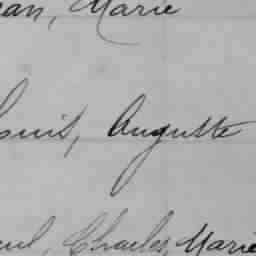 ean, Marie
Louis, Auguste
aul, Charles, Marie